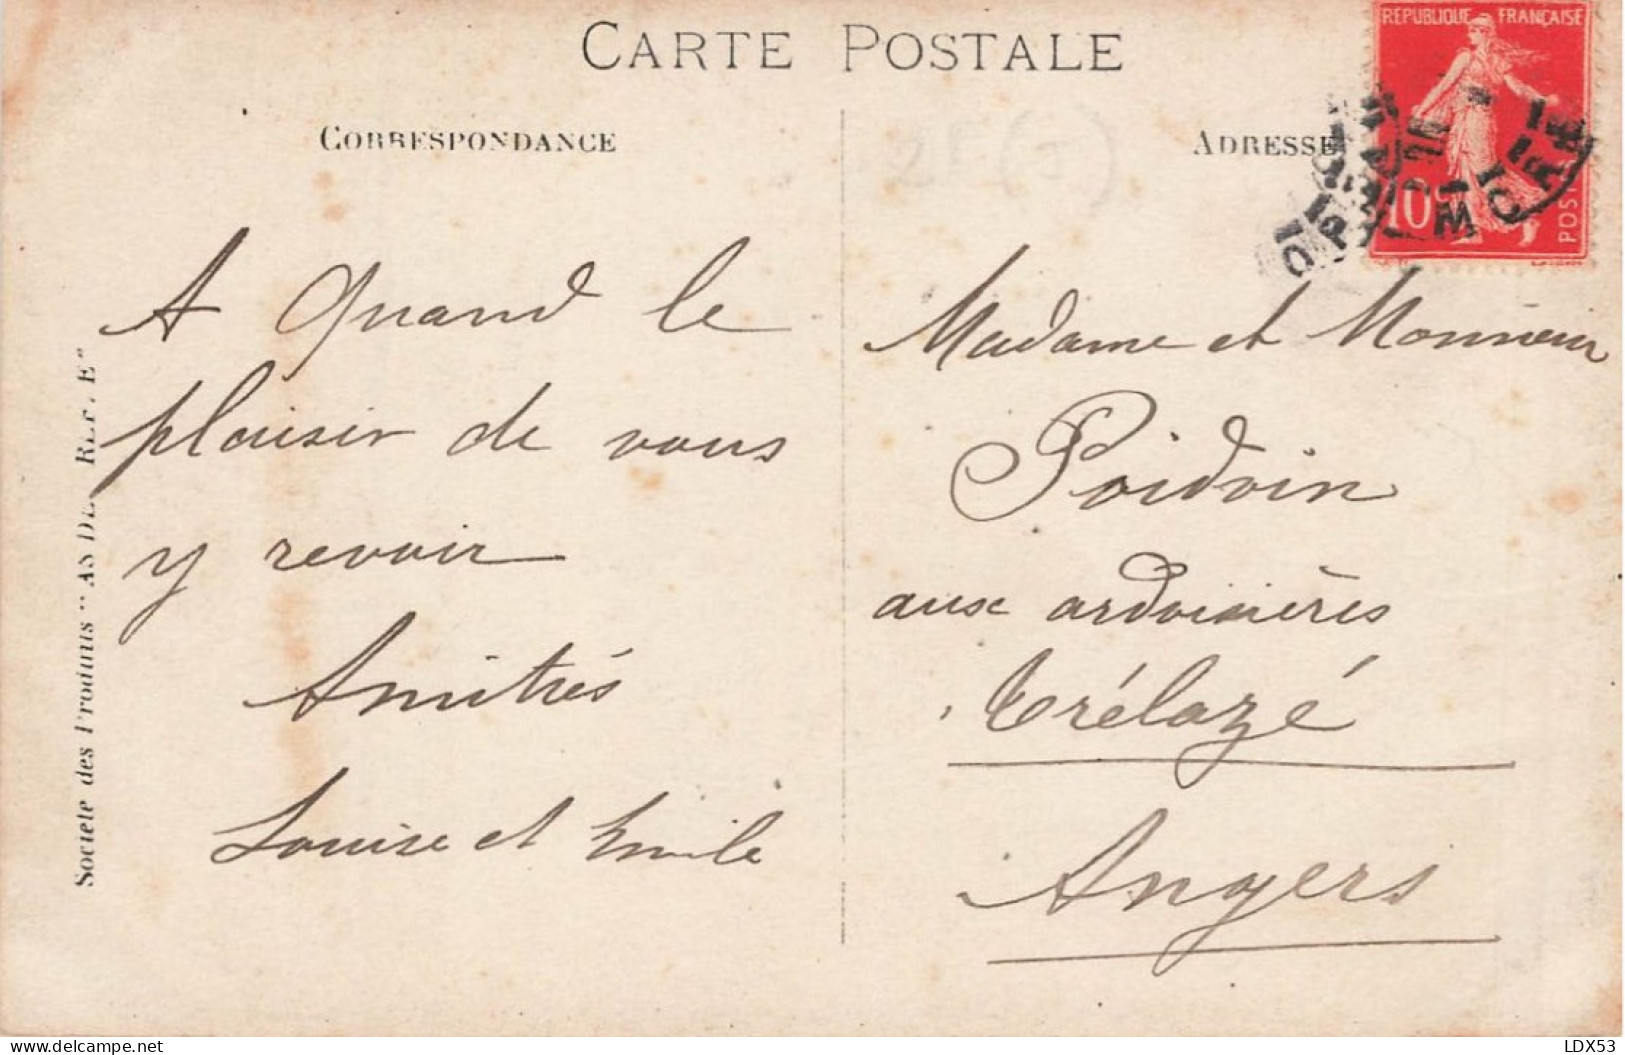 CARTE POSTALE
CORRESPONDANCE
ADRESSE
RÉPUBLIQUE FRANÇAISE
10c
POSTES
A Quand le
plaisir de vous
y revoir
Amitiés
Louise et Emile
Madame et Monsieur
Poidvin
aux ardoisières
Trélazé
Angers
Société des Produits "AS DE
delcampe.net
LDX53